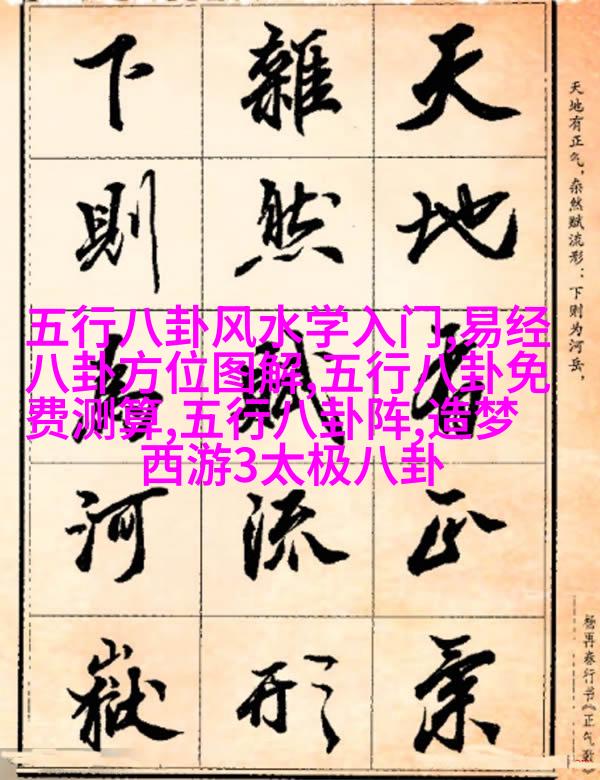 五行八卦风水学入门,易经
八卦方位图解,五行八卦免
费测算,五行八卦阵,造梦
西游3太极八卦
天地有正氣
雜然賦流形
下則為河嶽
天地有正气，杂然赋流形：下则为河岳，
杨再春行书《正气歌》